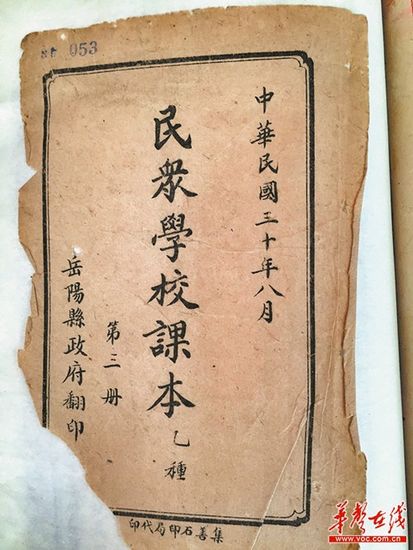 053
中華民國三十年八月
民眾學校課本乙種
第三册
岳陽縣政府翻印
集善石印局代印
華聲在线
www.voc.com.cn